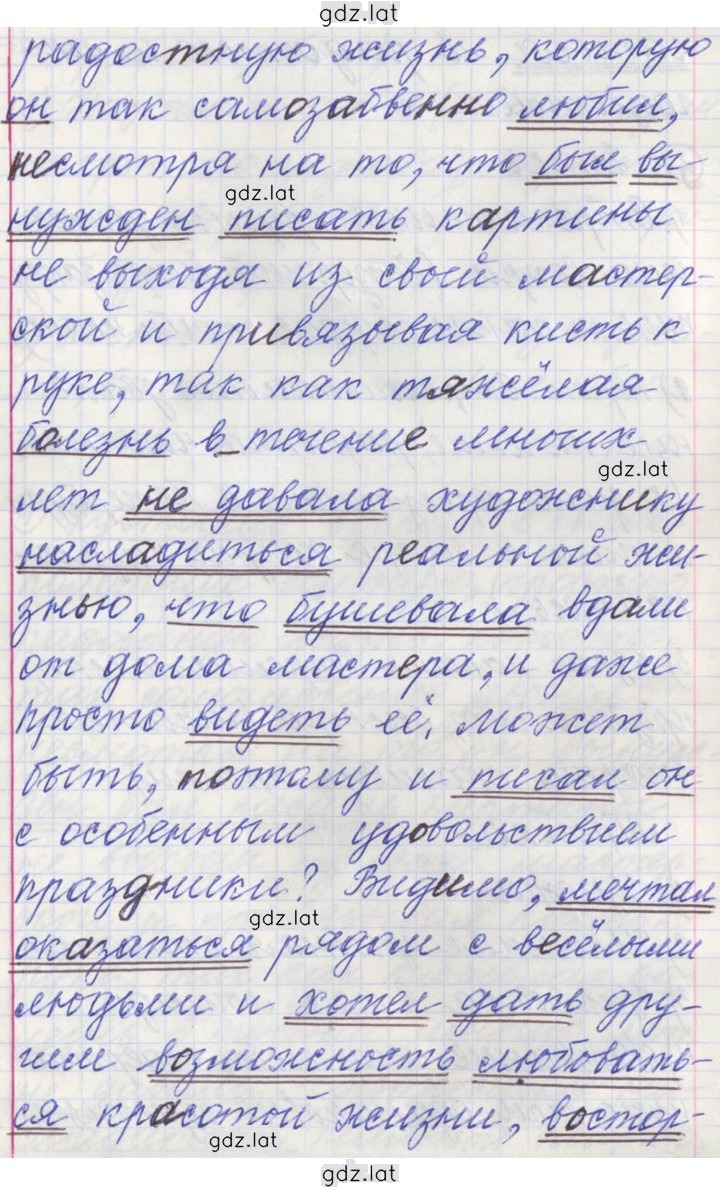 gdz.lat
радостную жизнь, которую
он так самозабвенно любил,
несмотря на то, что был вы-
gdz.lat
нужден писать картины
не выходя из своей мастер-
ской и привязывая кисть к
руке, так как тяжёлая
болезнь в течение многих
gdz.lat
лет не давала художнику
насладиться реальной жи-
знью, что бушевала вдали
от дома мастера, и даже
просто видеть её, может
быть, поэтому и писал он
с особенным удовольствием
праздники? Видимо, мечтал
gdz.lat
оказаться рядом с весёлыми
людьми и хотел дать дру-
гим возможность любовать-
ся красотой жизни, востор-
gdz.lat
gdz.lat